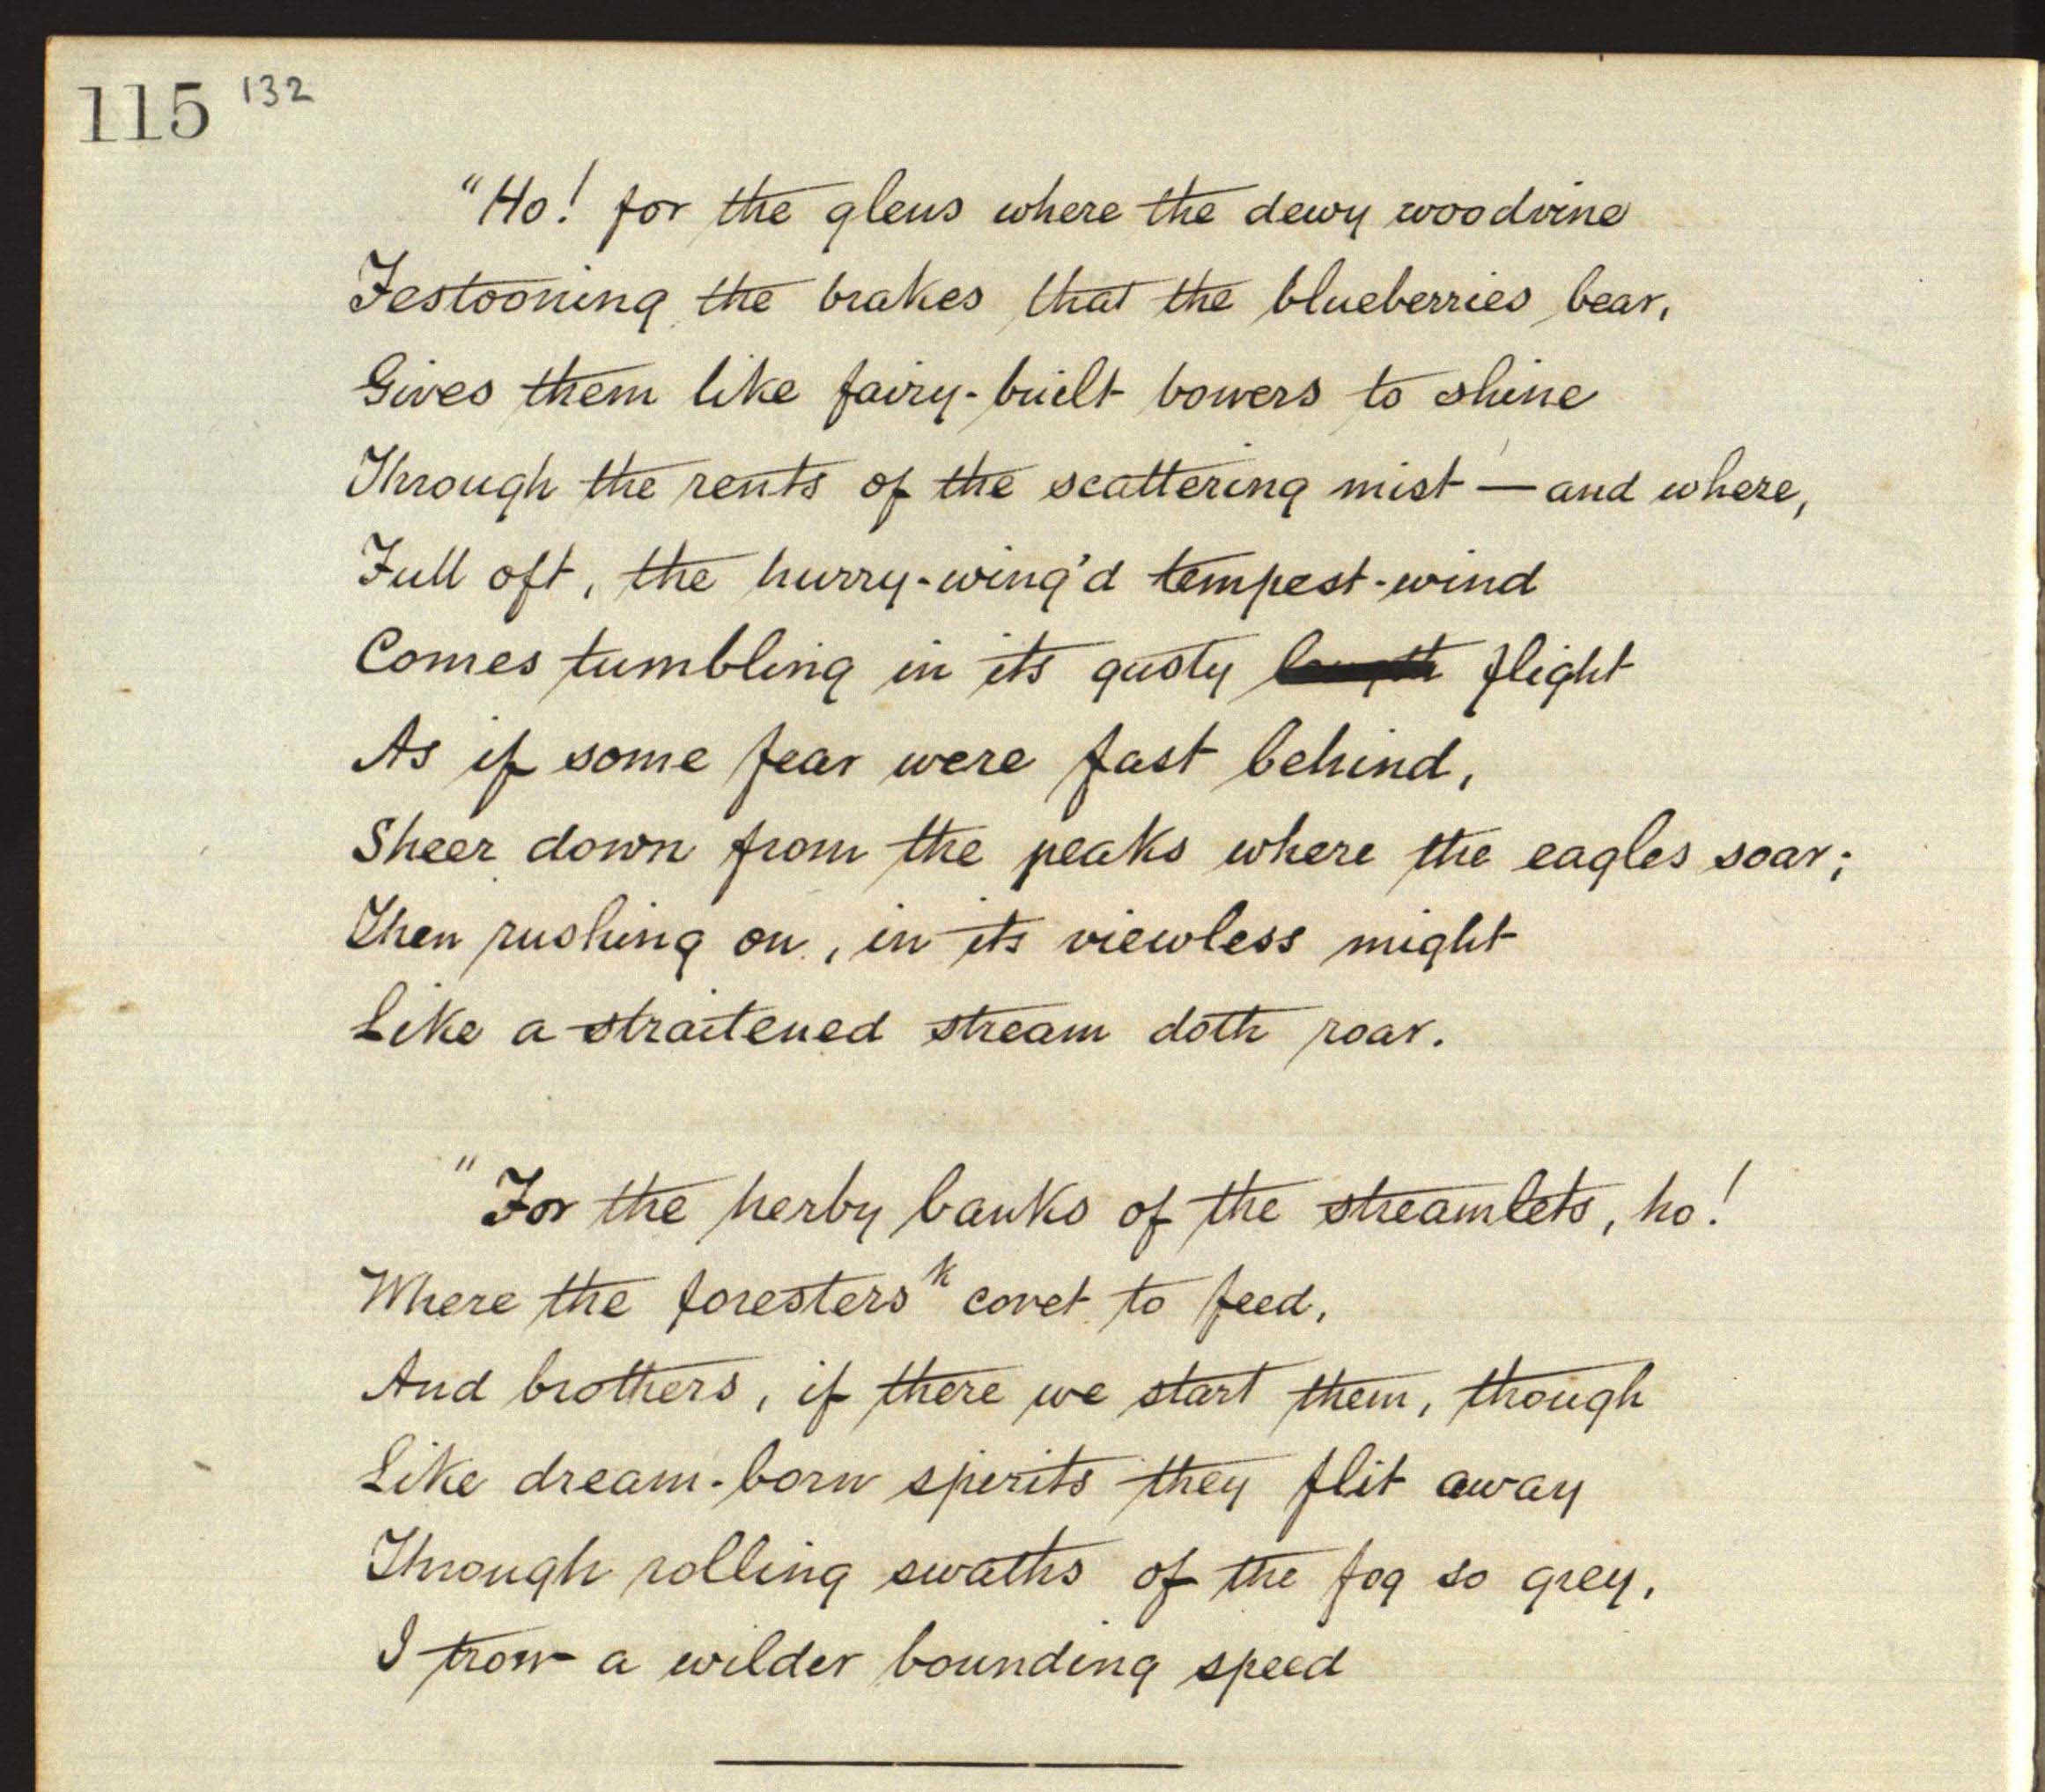 115 132
"Ho! for the glens where the dewy woodvine
Festooning the brakes that the blueberries bear,
Gives them like fairy-built bowers to shine
Through the rents of the scattering mist — and where,
Full oft, the hurry-wing'd tempest-wind
Comes tumbling in its gusty flight
As if some fear were fast behind,
Sheer down from the peaks where the eagles soar;
Then rushing on, in its viewless might
Like a straitened stream doth roar.
"For the herby banks of the streamlets, ho!
Where the foresters k covet to feed,
And brothers, if there we start them, though
Like dream-born spirits they flit away
Through rolling swaths of the fog so grey,
I trow a wilder bounding speed